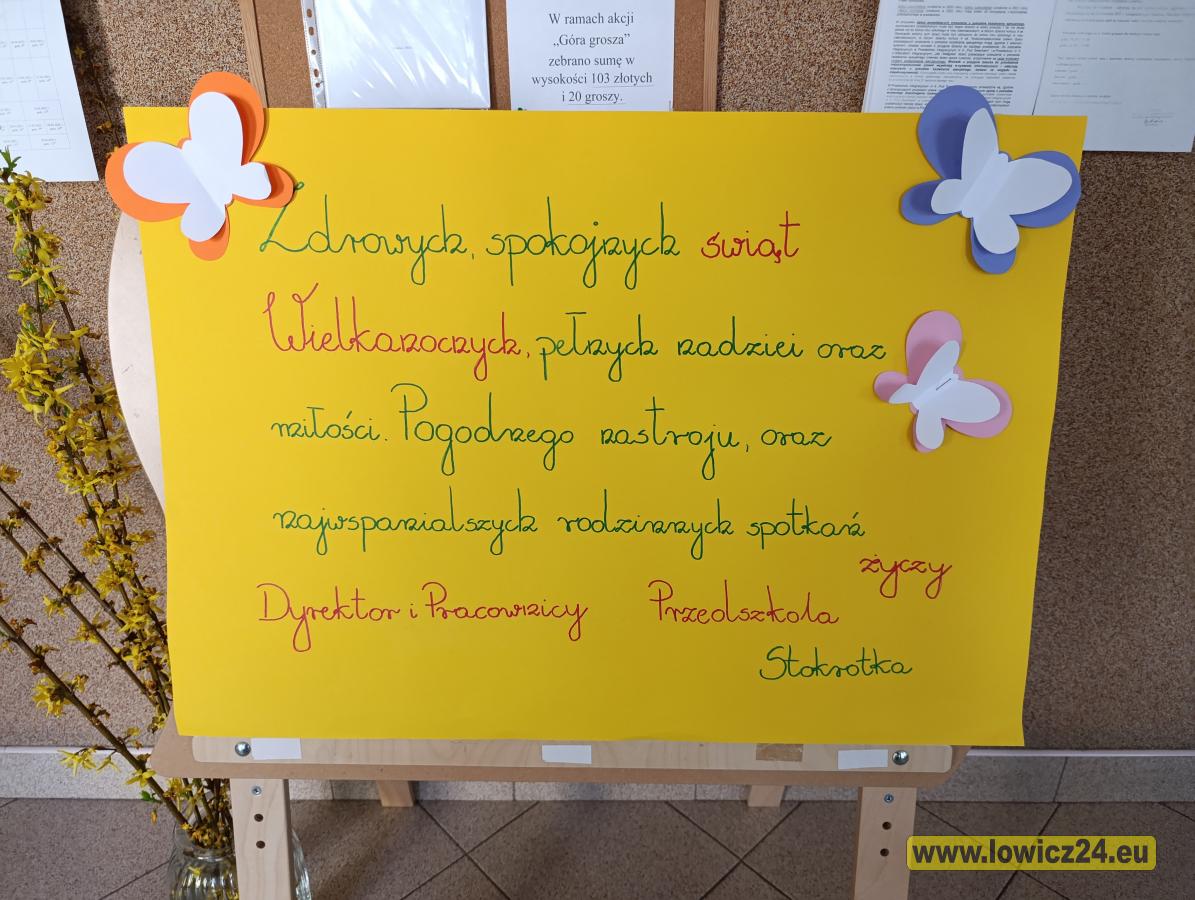 W ramach akcji
„Góra grosza”
zebrano sumę w
wysokości 103 złotych
i 20 groszy.
Zdrowych, spokojnych świąt
Wielkanocnych, pełnych nadziei oraz
miłości. Pogodnego nastroju, oraz
najwspanialszych rodzinnych spotkań
życzy
Dyrektor i Pracownicy Przedszkola
Stokrotka
www.lowicz24.eu